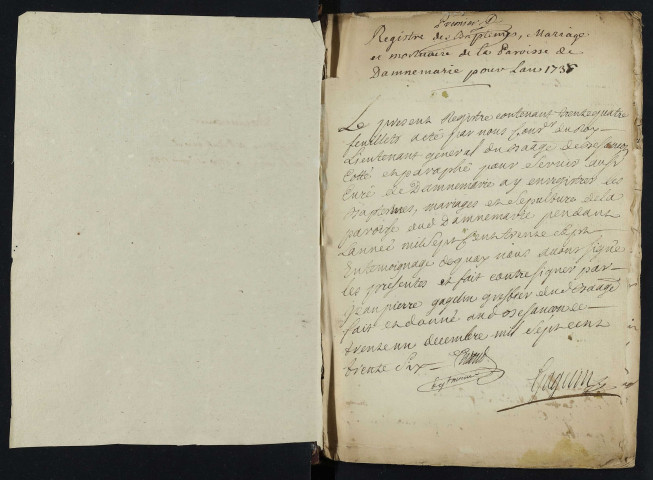 Registre des Baptemes, Mariage
et mortuaire de la Paroisse de
Damnemarie pour Lan 173
Le present Registre contenant trente quatre
feuillets a été par nous Con.er du Roy
Lieutenant général du Baage de
Cotté et paraphé pour servir au Sr
Curé de Damnemarie a y enregistrer les
Baptemes, mariages et sepulture de la
paroisse dud Damnemarie pendant
L'année mil sept Cent trente sept
En temoignage de quoy nous avons signé
les presentes et fait contresigner par
Jean pierre gaguin greffier aud Baage
fait et donné aud Besancon le
trente un decembre mil sept cent
trente six
Gaguin